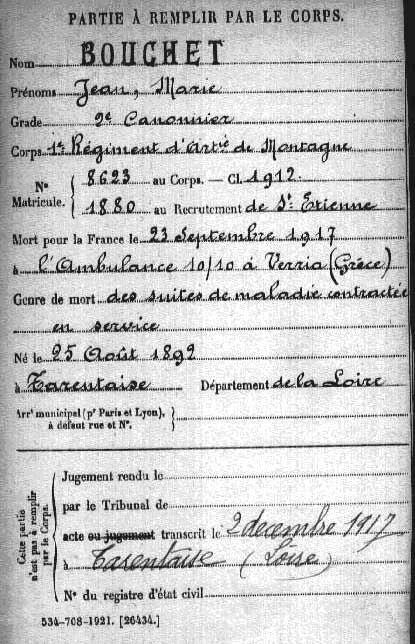 PARTIE À REMPLIR PAR LE CORPS.
Nom BOUCHET
Prénoms Jean, Marie
Grade 2e Canonnier
Corps 1er Régiment d'Artie de Montagne
No Matricule. { 8623 au Corps. — Cl. 1912.
1880 au Recrutement de St Etienne
Mort pour la France le 23 Septembre 1917
à l'Ambulance 10/10 à Verria (Grèce)
Genre de mort des suites de maladie contractée
en service
Né le 25 Août 1892
à Tarentaise Département de la Loire
Arrt municipal (pr Paris et Lyon), à défaut rue et No. }
Cette partie n'est pas à remplir par le Corps. {
Jugement rendu le
par le Tribunal de
acte ou jugement transcrit le 2 decembre 1917
à Tarentaise (Loire)
No du registre d'état civil
534-708-1921. [26434.]